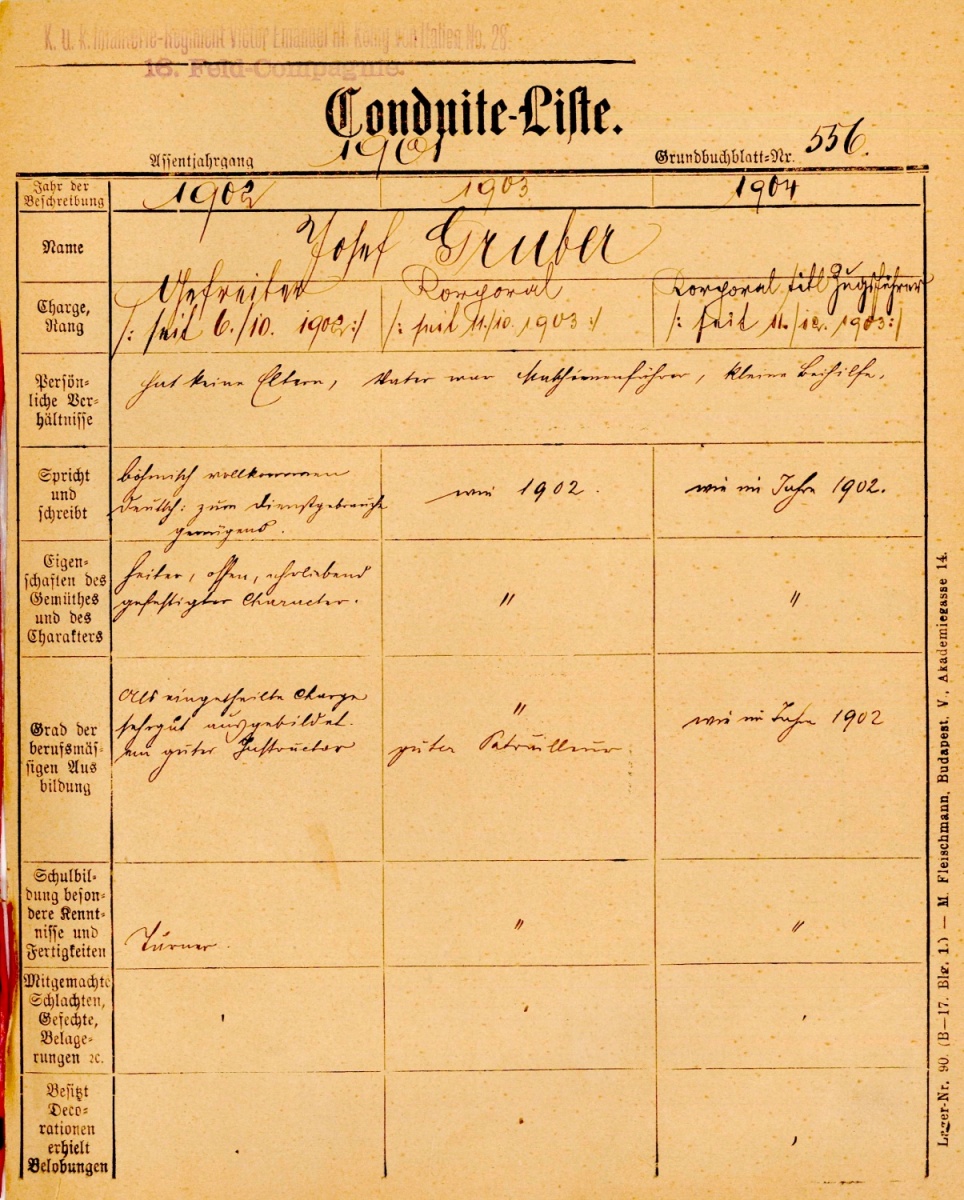 K. u. k. Infanterie-Regiment Victor Emanuel III. König von Italien No. 28.
16. Feld-Compagnie.
Conduite-Liste.
Assentjahrgang 1901
Grundbuchblatt-Nr. 556.
Jahr der Beschreibung
1902
1903
1904
Name
Josef Gruber
Charge, Rang
Gefreiter
/: seit 6./10. 1902 :/
Korporal
/: seit 11./10. 1903 :/
Korporal titl Zugsführer
/: seit 11./10. 1903 :/
Persön-
liche Ver-
hältnisse
hat keine Eltern, Vater war Maschinenführer, kleine Beihilfe.
Spricht
und
schreibt
böhmisch vollkommen
deutsch: zum Dienstgebrauche
genügend.
wie 1902.
wie im Jahre 1902.
Eigen-
schaften des
Gemüthes
und des
Charakters
heiter, offen, ehrliebend
gefestigter Character.
"
"
Grad der
berufsmäs-
sigen Aus
bildung
Als eingetheilte Charge
sehr gut ausgebildet.
ein guter Instructor
"
guter Patrouilleur
wie im Jahre 1902
Schulbil-
dung beson-
dere Kennt-
nisse und
Fertigkeiten
Turner.
"
"
Mitgemachte
Schlachten,
Gefechte,
Belage-
rungen ꝛc.
Besitzt
Deco-
rationen
erhielt
Belobungen
Lager-Nr. 90. (B—17. Blg. 1.) — M. Fleischmann, Budapest, V., Akademiegasse 14.